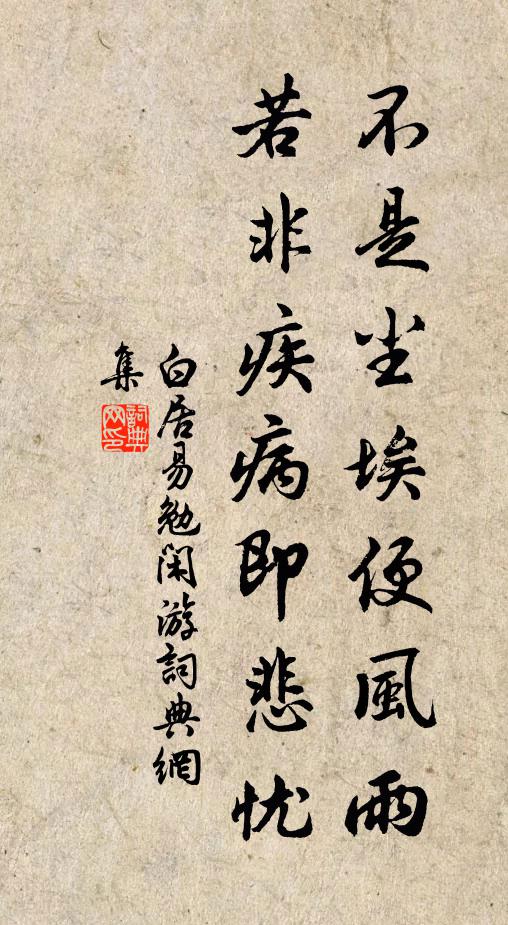 不是尘埃便風雨
若非疾病即悲忧
白居易勉闲游詞典網
集
詞典网印